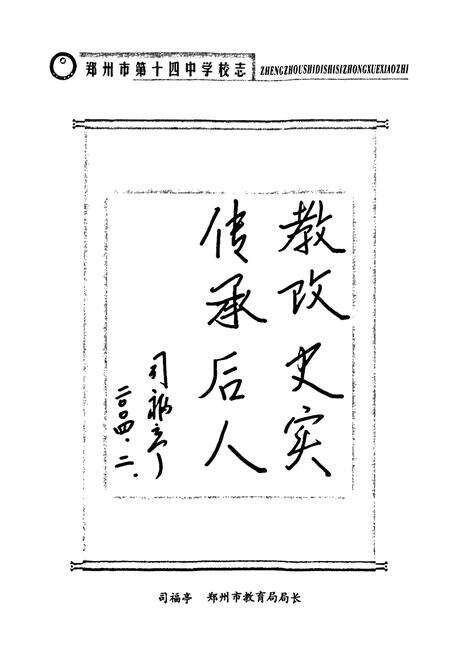 郑州市第十四中学校志 ZHENGZHOUSHIDISHISIZHONGXUEXIAOZHI
教改史实
传承后人
司福亭
二〇〇四.二.
司福亭 郑州市教育局局长